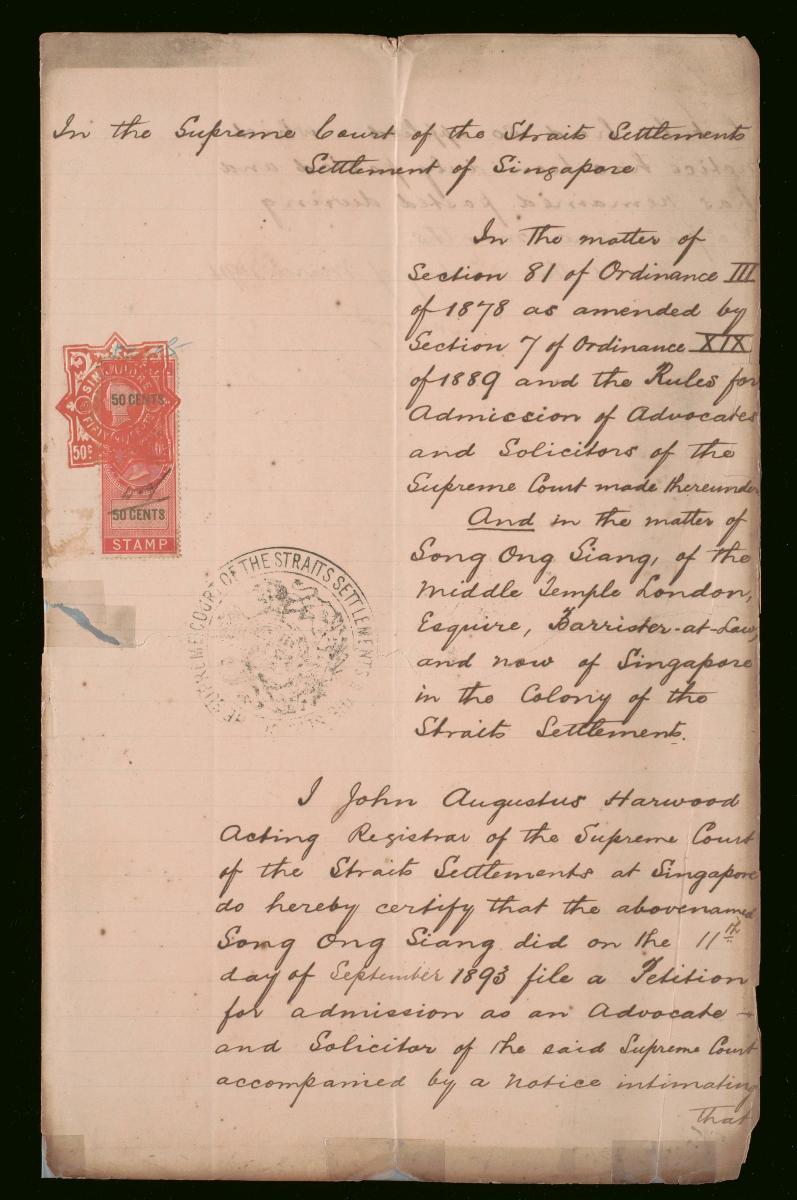 In the Supreme Court of the Straits Settlements
Settlement of Singapore
In the matter of
Section 81 of Ordinance III
of 1878 as amended by
Section 7 of Ordinance XIX
of 1889 and the Rules for
Admission of Advocates
and Solicitors of the
Supreme Court made thereunder
And in the matter of
Song Ong Siang, of the
Middle Temple London,
Esquire, Barrister-at-Law,
and now of Singapore
in the Colony of the
Straits Settlements.
SINGAPORE
50 CENTS
50
50 CENTS
STAMP
SUPREME COURT OF THE STRAITS SETTLEMENTS
I John Augustus Harwood
Acting Registrar of the Supreme Court
of the Straits Settlements at Singapore
do hereby certify that the abovenamed
Song Ong Siang did on the 11th
day of September 1893 file a Petition
for admission as an Advocate
and Solicitor of the said Supreme Court
accompanied by a notice intimating
that